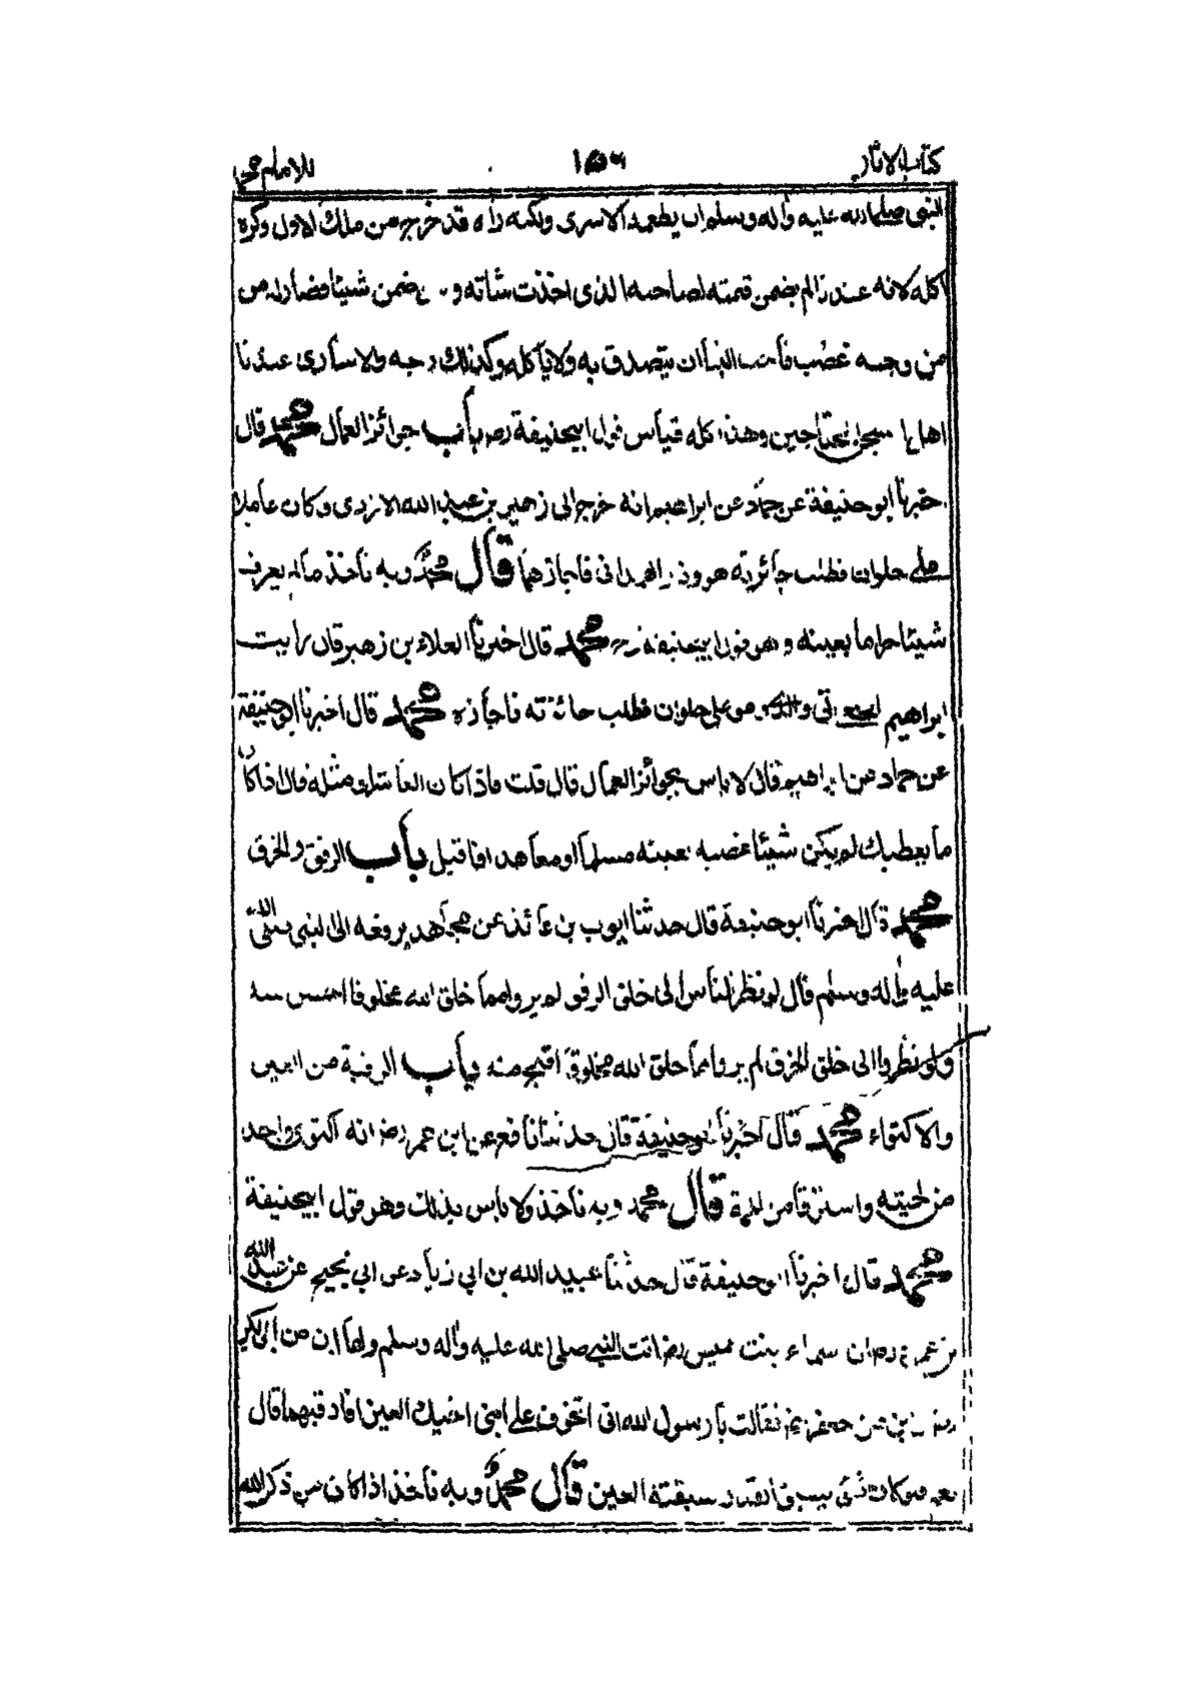 كتاب الاثار ١٥٦ للامام محمد
النبي صلى الله عليه وآله وسلم ان يطعمه الاسرى ولكنه رآه قد خرج من ملك الاول وكره
اكله لانه عندنا لم يضمن قيمته لصاحبه الذى اخذت شاته و ضمن شيئا فصار له من
من وجه غصب فأحب الينا ان يتصدق به ولا يأكله وكذلك ربحه والاسارى عندنا
اهل السجن المحتاجين وهذا كله قياس قول ابيحنيفة رح باب جوائز العمال محمد قال
اخبرنا ابو حنيفة عن حماد عن ابراهيم انه خرج الى زهير بن عبد الله الازدى وكان عاملا
على حلوان فطلب جائزته هو وذر الهمدانى فاجازهما قال محمد وبه نأخذ ما لم يعرف
شيئا حراما بعينه وهو قول ابيحنيفة رح محمد قال اخبرنا العلاء بن زهير قال رايت
ابراهيم النخعى اتى والدى هو على حلوان فطلب جائزته فاجازه محمد قال اخبرنا ابو حنيفة
عن حماد عن ابراهيم قال لا باس بجوائز العمال قال قلت فاذا كان العاشر او مثله قال اذا كان
ما يعطيك لم يكن شيئا غصبه بعينه مسلما او معاهدا فاقبل باب الرفق والخرق
محمد قال اخبرنا ابو حنيفة قال حدثنا ايوب بن عائذ عن مجاهد يرفعه الى النبي صلى الله
عليه وآله وسلم قال لو نظر الناس الى خلق الرفق لم يروا مما خلق الله مخلوقا احسن منه
ولو نظروا الى خلق الخرق لم يروا مما خلق الله مخلوقا اقبح منه باب الرقية من العين
والاكتواء محمد قال اخبرنا ابو حنيفة قال حدثنا نافع عن ابن عمر رض انه اكتوى واخذ
من لحيته واسترقى من الحمة قال محمد وبه نأخذ ولا باس بذلك وهو قول ابيحنيفة
محمد قال اخبرنا ابو حنيفة قال حدثنا عبيد الله بن ابي زياد عن ابي نجيح عن عبد الله
بن عمر رض ان اسماء بنت عميس رض اتت النبي صلى الله عليه وآله وسلم ولها ابن من ابى بكر
رض وابن من جعفر رض فقالت يا رسول الله انى اتخوف على ابنى اخيك العين افارقيهما قال
نعم فلو كان شئ يسبق القدر سبقته العين قال محمد وبه نأخذ اذا كان من ذكر الله